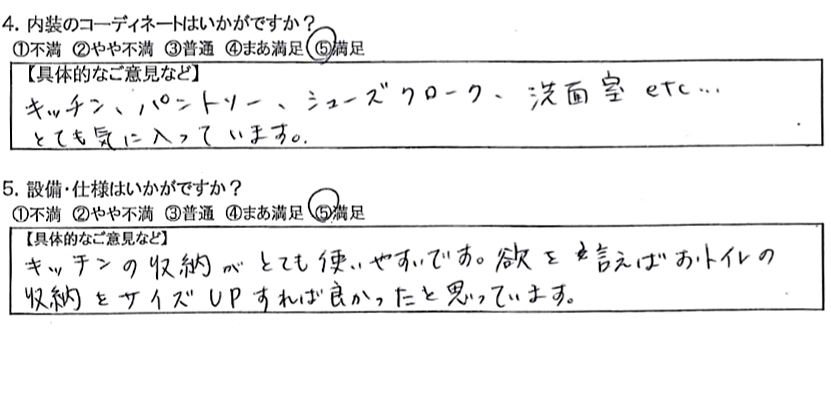 4. 内装のコーディネートはいかがですか?
①不満 ②やや不満 ③普通 ④まあ満足 ⑤満足
【具体的なご意見など】
キッチン、パントリー、シューズクローク、洗面室 etc…
とても気に入っています。
5. 設備・仕様はいかがですか?
①不満 ②やや不満 ③普通 ④まあ満足 ⑤満足
【具体的なご意見など】
キッチンの収納がとても使いやすいです。欲を言えばおトイレの
収納をサイズUPすれば良かったと思っています。